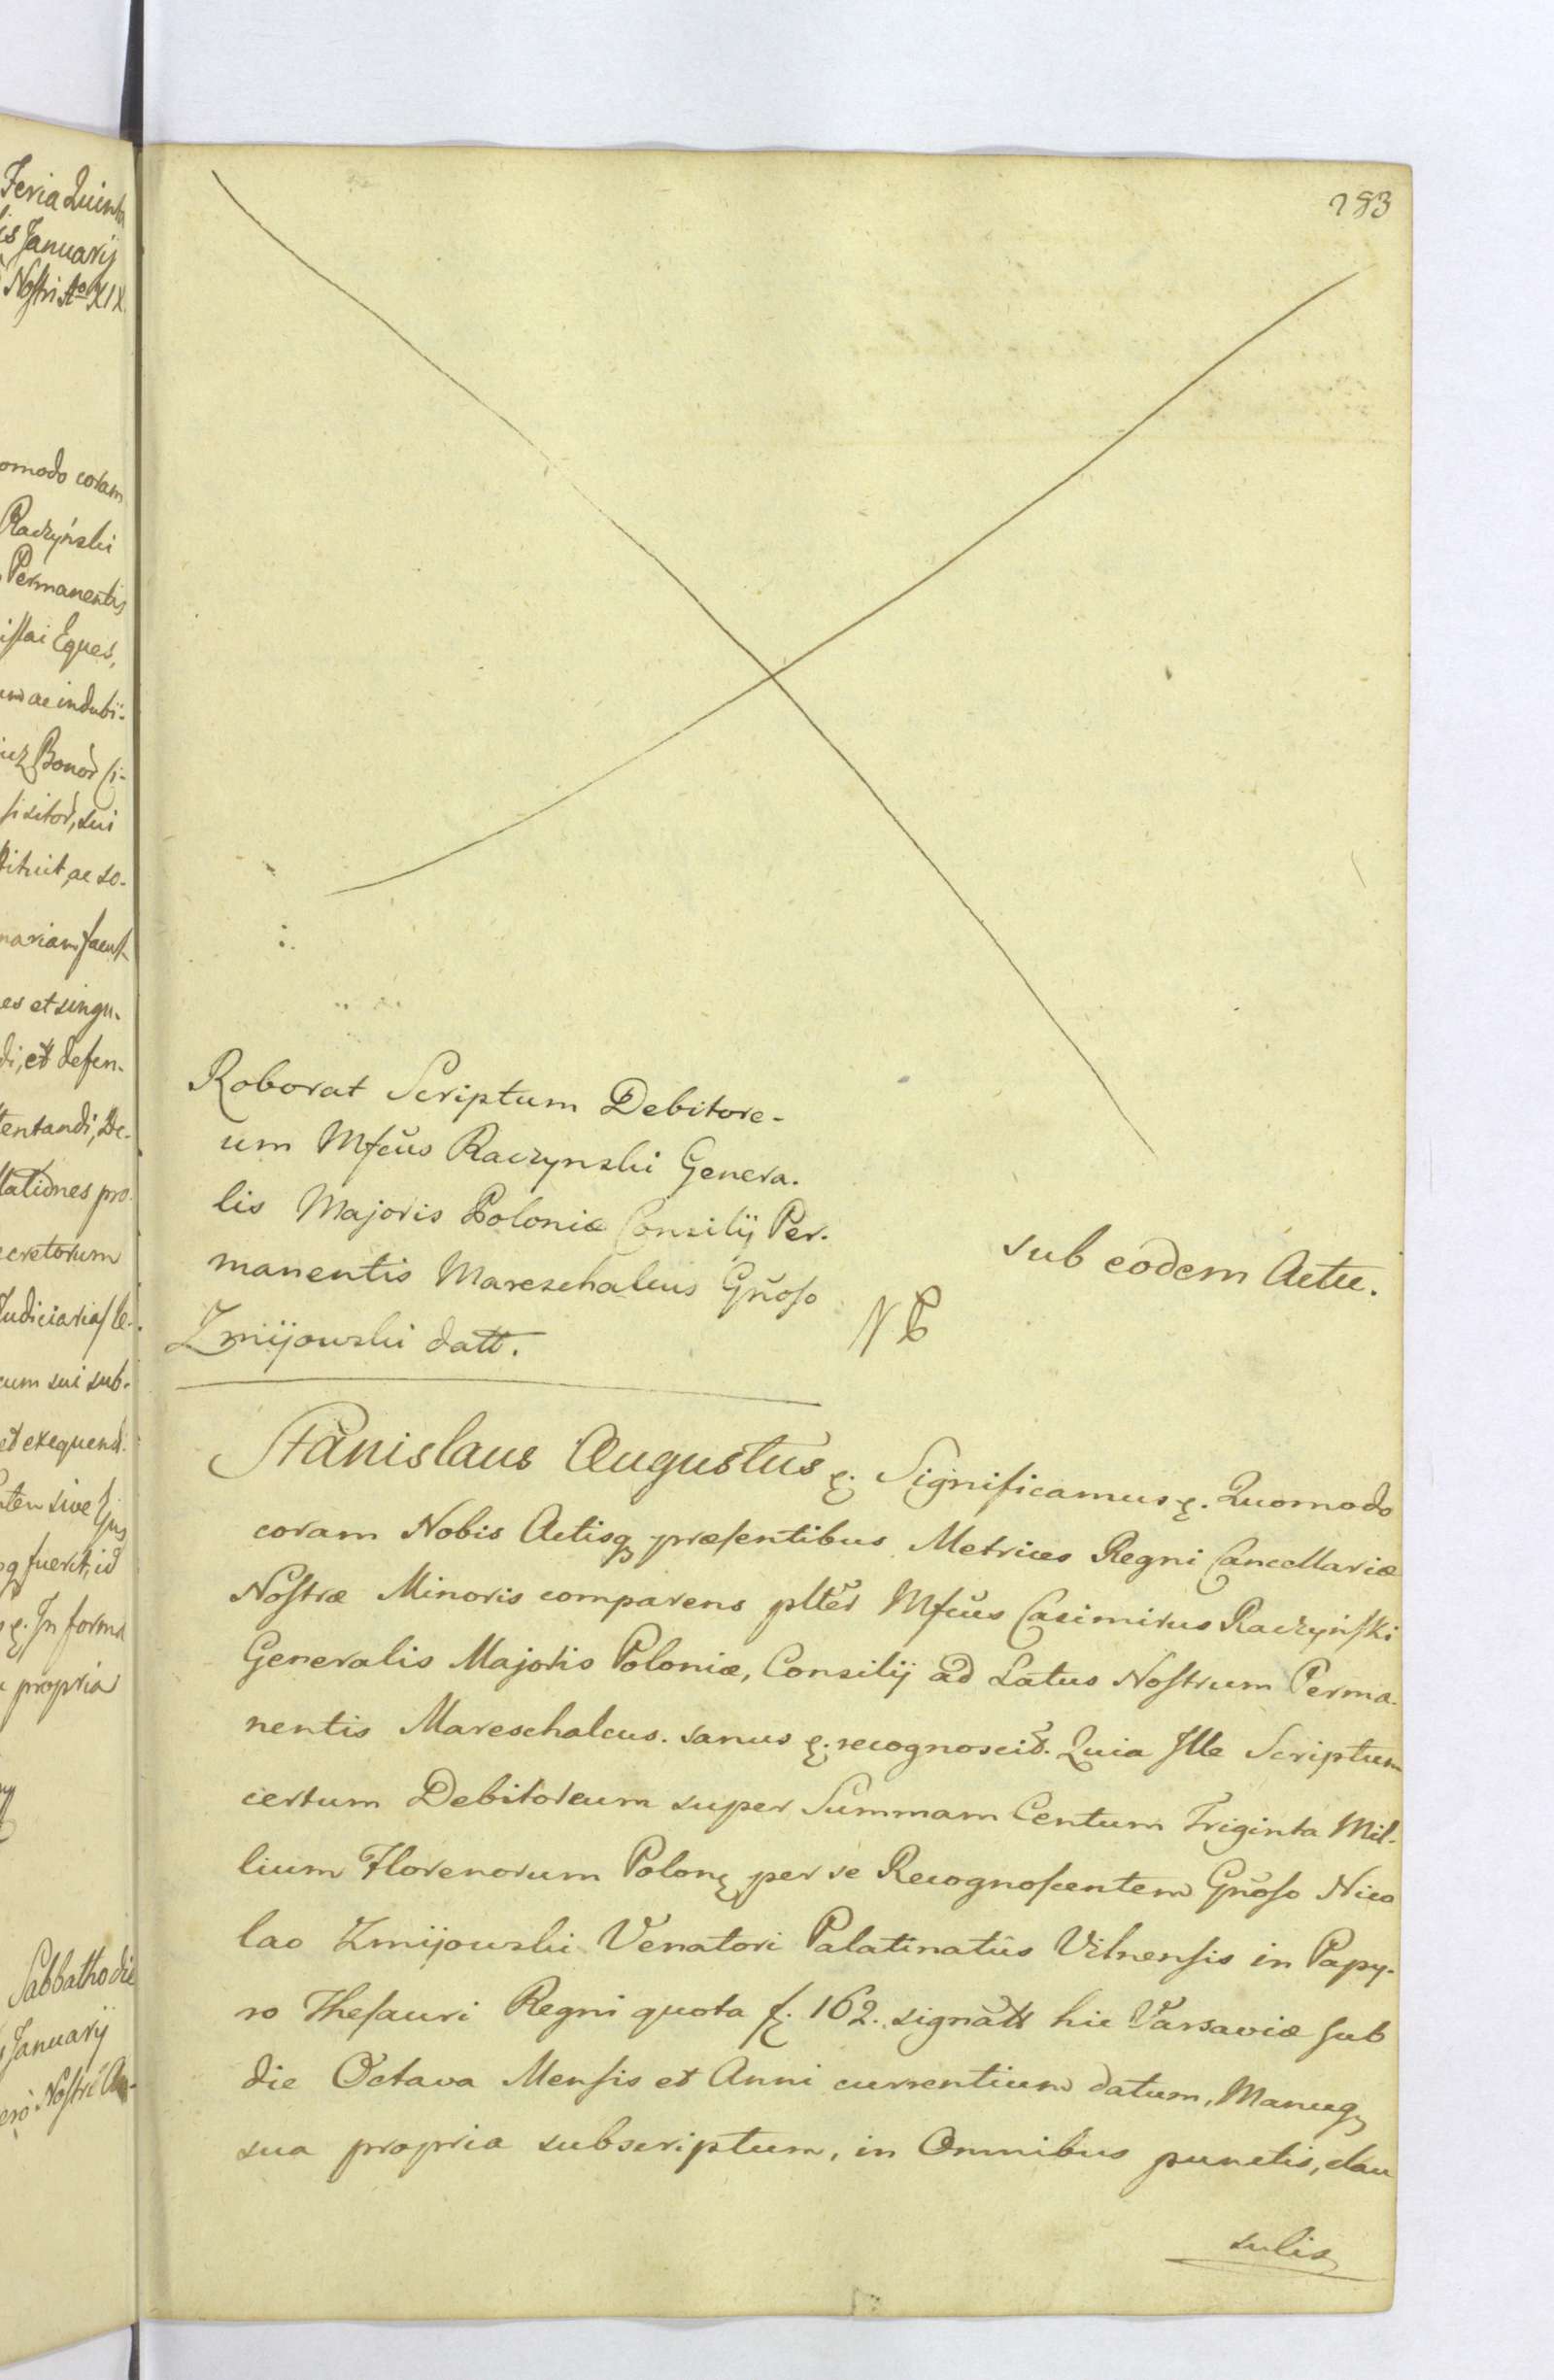 Feria Quinta
is Januarij
Nostri Ao XIX.
omodo coram
Raczyński
Permanentis
islai Eques,
um ac indubi-
Bonor
sisitor, sui
tituit, ac so-
nariam facult
es et singu-
di, et defen-
tentandi, De-
tationes pro
ecretorum
Judiciarias le-
cum sui sub-
et exequend.
sive Ejus
q fuerit, id
In forma
propria
Sabbatho die
Januarij
Nostri An-
283
Roborat Scriptum Debitore-
um Mfcus Raczynski Genera-
lis Majoris Poloniæ Consilij Per-
manentis Mareschalcus Gnoso
Zmijowski datt.
sub eodem Actu.
NB
Stanislaus Augustus ę. Significamus ę. Quomodo
coram Nobis Actisq præsentibus Metrices Regni Cancellariæ
Nostræ Minoris comparens plter Mfcus Casimirus Raczyński
Generalis Majoris Poloniæ, Consilij ad Latus Nostrum Perma-
nentis Mareschalcus. sanus ę. recognoscit. Quia Ille Scriptum
certum Debitoreum super Summam Centum Triginta Mil-
lium Florenorum Polonę per se Recognoscentem Gnoso Nico
lao Zmijowski Venatori Palatinatûs Vilnensis in Papy-
ro Thesauri Regni quota f. 162. signatt hic Varsaviæ sub
die Octava Mensis et Anni currentium datum, Manuq
sua propria subscriptum, in Omnibus punctis, clau
sulis